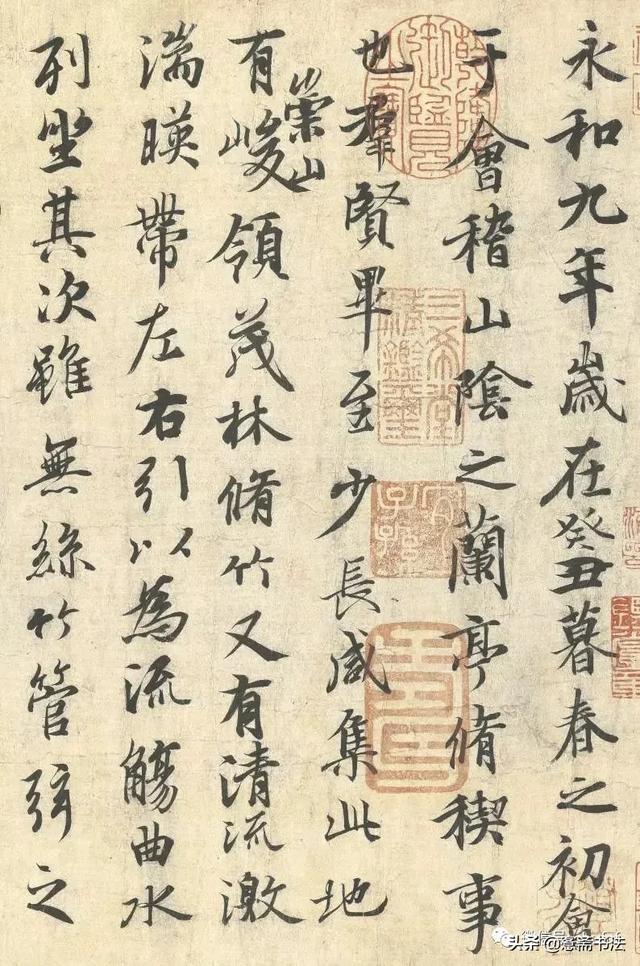 永和九年歲在癸丑暮春之初會
于會稽山陰之蘭亭脩稧事
也羣賢畢至少長咸集此地
有崇山峻領茂林脩竹又有清流激
湍暎帶左右引以為流觴曲水
列坐其次雖無絲竹管弦之
乾隆御覽之寶
三希堂精鑑璽
宜子孫
头条 @斋书法